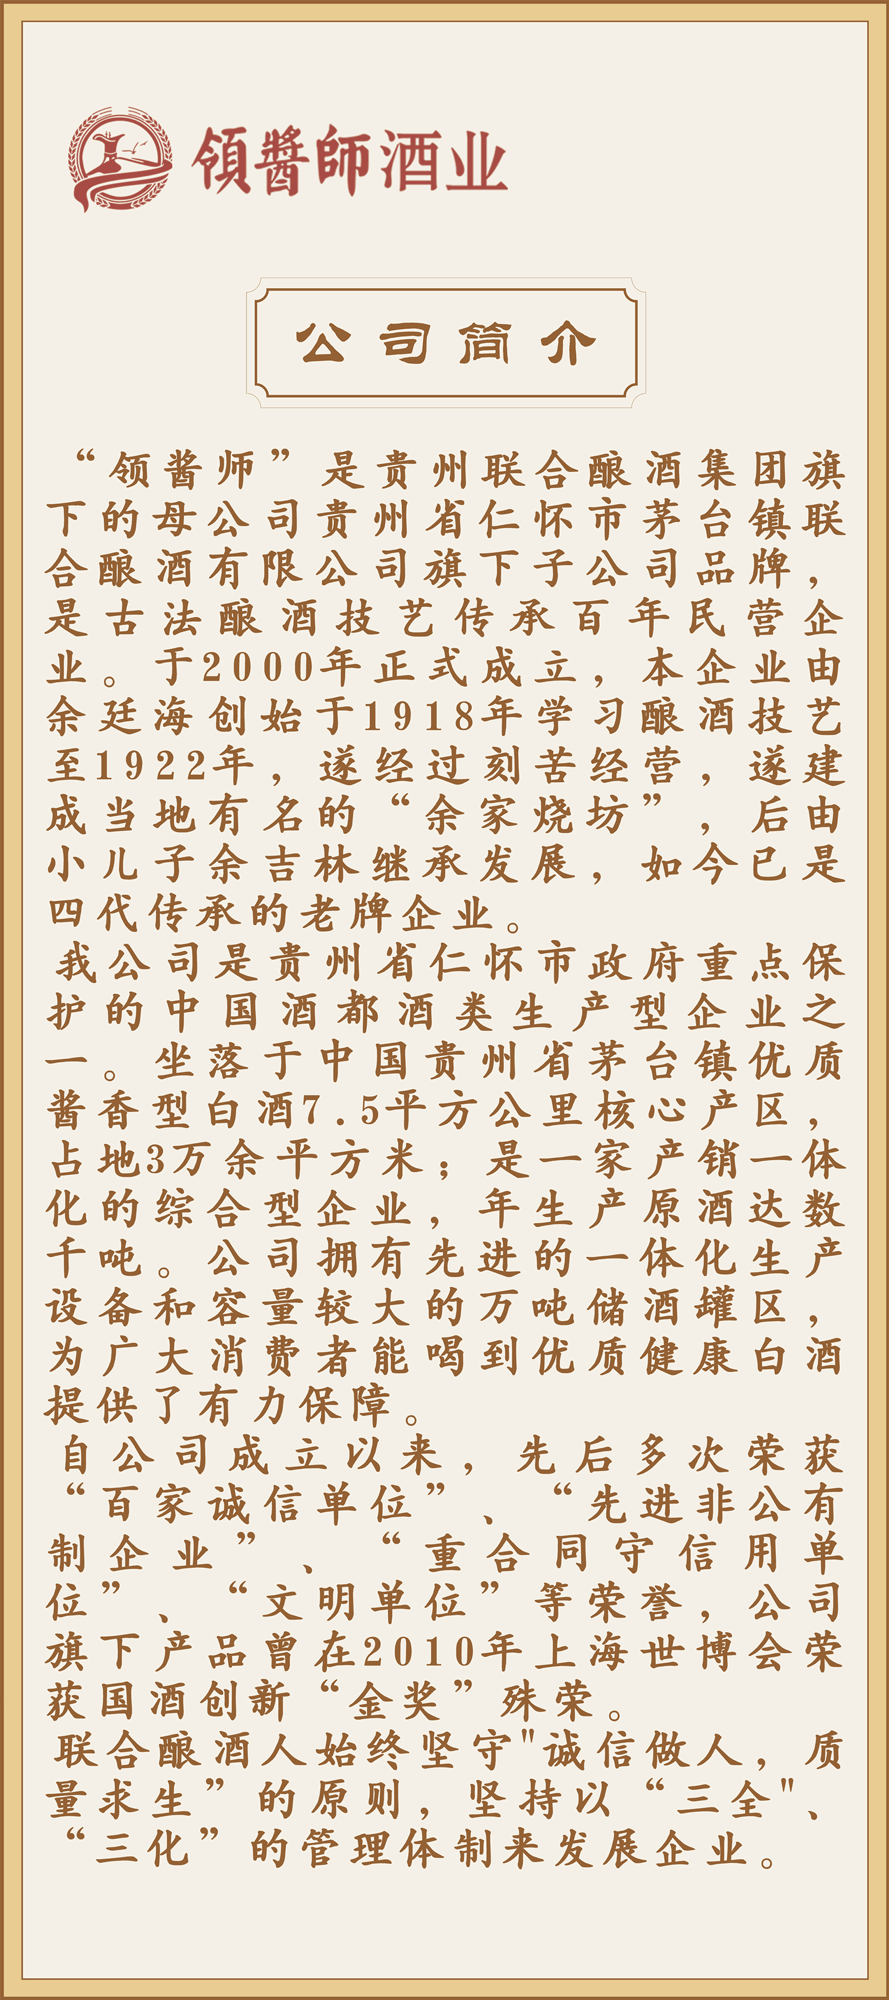 領醬師酒业
公司简介
“领酱师”是贵州联合酿酒集团旗
下的母公司贵州省仁怀市茅台镇联
合酿酒有限公司旗下子公司品牌，
是古法酿酒技艺传承百年民营企
业。于2000年正式成立，本企业由
余廷海创始于1918年学习酿酒技艺
至1922年，遂经过刻苦经营，遂建
成当地有名的“余家烧坊”，后由
小儿子余吉林继承发展，如今已是
四代传承的老牌企业。
我公司是贵州省仁怀市政府重点保
护的中国酒都酒类生产型企业之
一。坐落于中国贵州省茅台镇优质
酱香型白酒7.5平方公里核心产区，
占地3万余平方米；是一家产销一体
化的综合型企业，年生产原酒达数
千吨。公司拥有先进的一体化生产
设备和容量较大的万吨储酒罐区，
为广大消费者能喝到优质健康白酒
提供了有力保障。
自公司成立以来，先后多次荣获
“百家诚信单位”、“先进非公有
制企业”、“重合同守信用单
位”、“文明单位”等荣誉，公司
旗下产品曾在2010年上海世博会荣
获国酒创新“金奖”殊荣。
联合酿酒人始终坚守"诚信做人，质
量求生”的原则，坚持以“三全"、
“三化”的管理体制来发展企业。